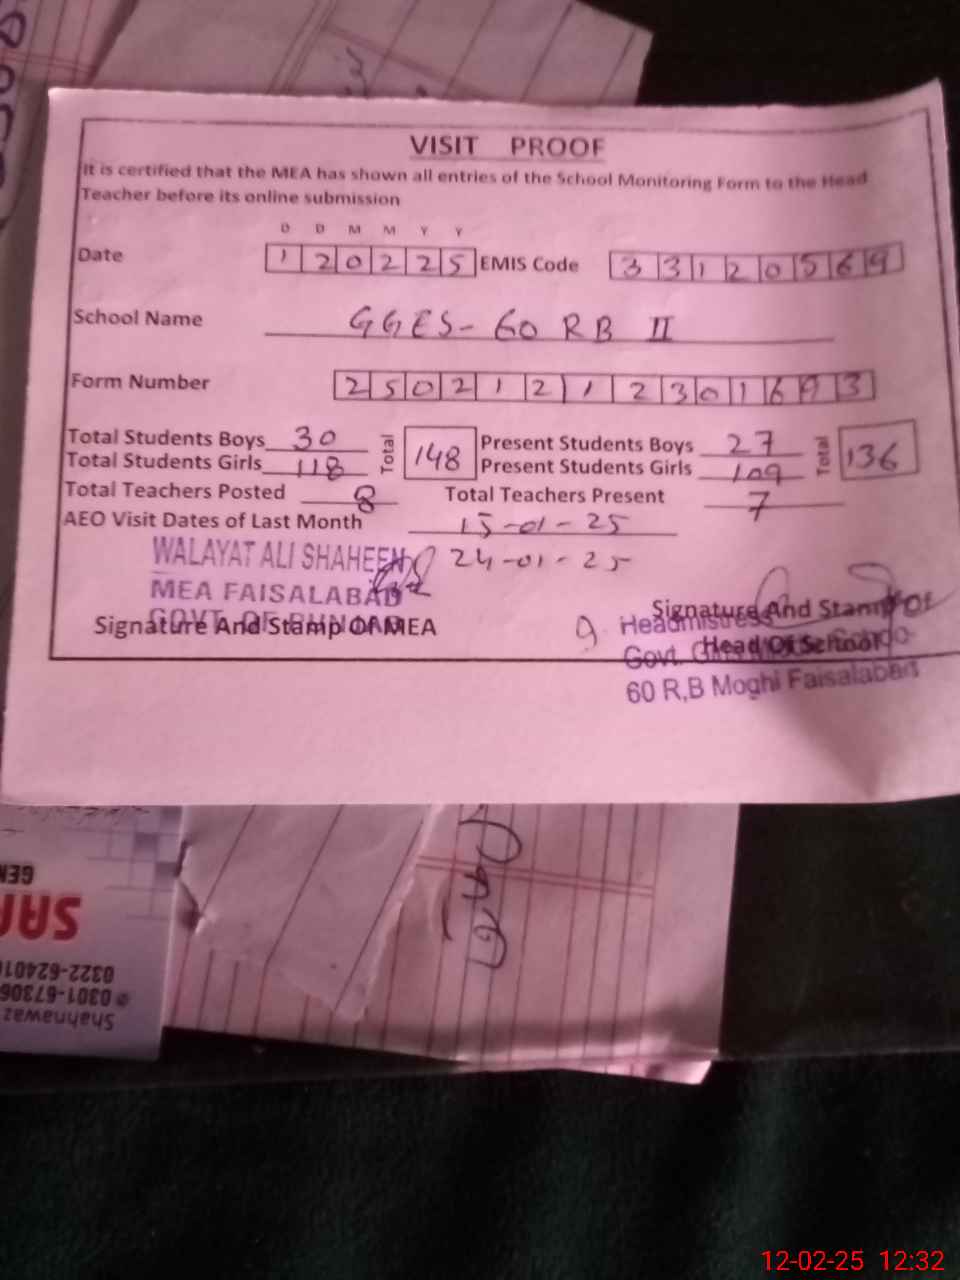 VISIT PROOF
It is certified that the MEA has shown all entries of the School Monitoring Form to the Head
Teacher before its online submission
D D M M Y Y
Date 1 2 0 2 2 5 EMIS Code 3 3 1 2 0 5 6 9
School Name GGES- 60 RB II
Form Number 2 5 0 2 1 2 1 2 3 0 1 6 9 3
Total Students Boys 30 Total 148 Present Students Boys 27 Total 136
Total Students Girls 118 Present Students Girls 109
Total Teachers Posted 8 Total Teachers Present 7
AEO Visit Dates of Last Month 15-01-25
24-01-25
WALAYAT ALI SHAHEEN
MEA FAISALABAD
GOVT. OF PUNJAB
Signature And Stamp Of MEA
Signature And Stamp Of
Head Of School
Headmistress
Govt.
60 R,B Moghi Faisalabad
GEN
0322-62401
0301-67306
Shahnawaz
12-02-25 12:32